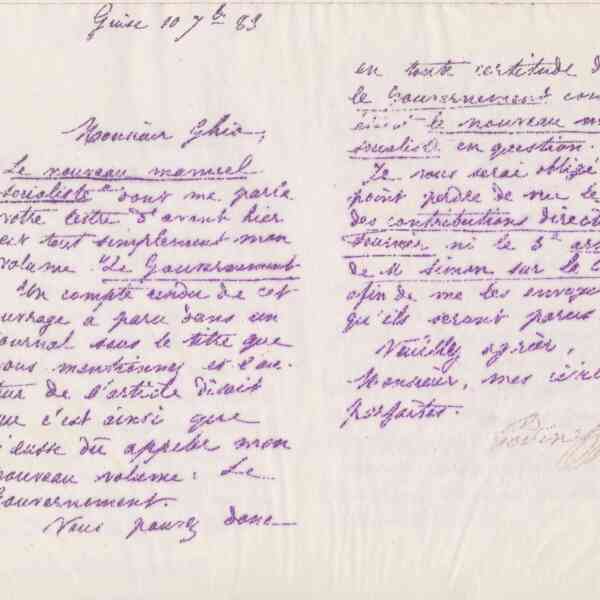 Guise 10 7bre 83
Monsieur Ghio,
Le nouveau manuel
socialiste dont me parle
votre lettre d'avant hier
est tout simplement mon
volume "Le Gouvernement"
Un compte rendu de cet
ouvrage a paru dans un
journal sous le titre que
vous mentionnez et l'au-
teur de l'article disait
que c'est ainsi que
j'eusse dû appeler mon
nouveau volume: Le
Gouvernement.
Vous pouvez donc
en toute certitude
le Gouvernement
le nouveau
socialiste en question.
Je vous serai obligé
point perdre de vue le
des contributions direct
ni le 3e
de M Simon sur la
afin de me les envoyer
qu'ils seront parus
Veuillez agréer,
Monsieur, mes
parfaites.
Godin